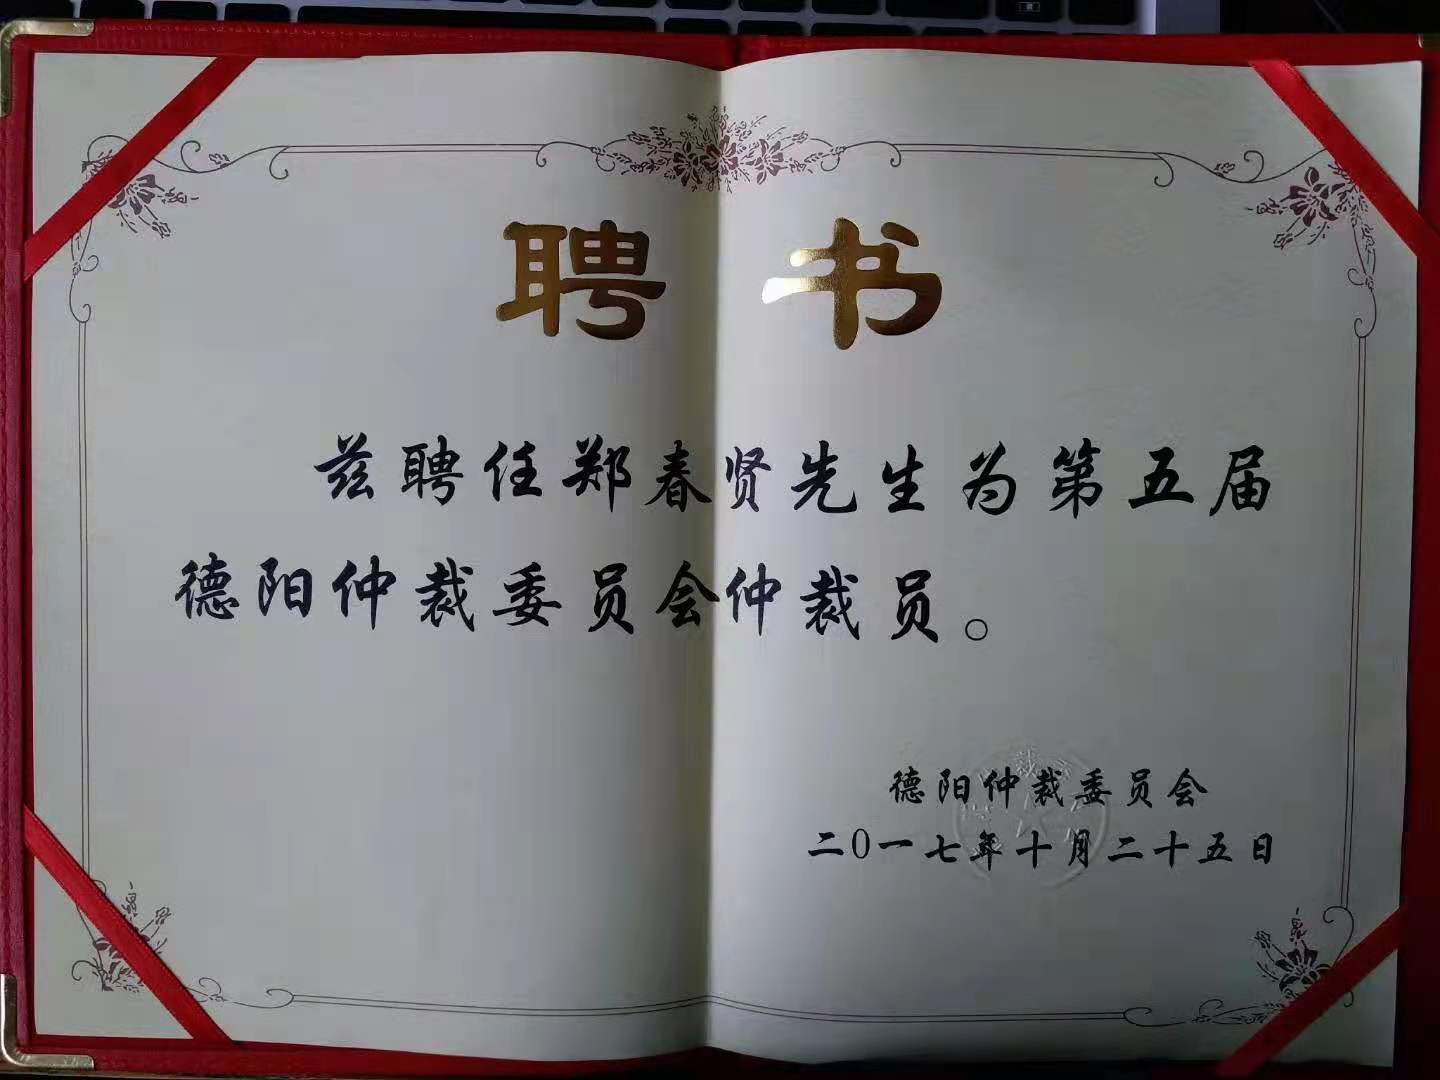 聘书
兹聘任郑春贤先生为第五届
德阳仲裁委员会仲裁员。
德阳仲裁委员会
二0一七年十月二十五日